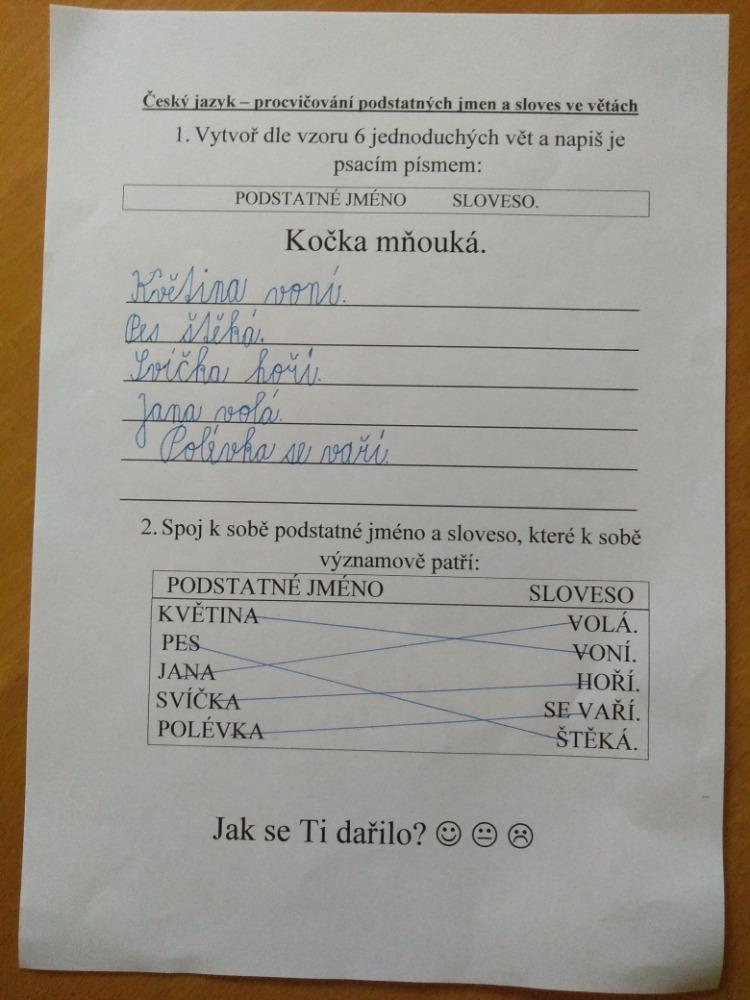 Český jazyk – procvičování podstatných jmen a sloves ve větách
1. Vytvoř dle vzoru 6 jednoduchých vět a napiš je
psacím písmem:
PODSTATNÉ JMÉNO SLOVESO.
Kočka mňouká.
Květina voní.
Pes štěká.
Svíčka hoří.
Jana volá.
Polévka se vaří.
2. Spoj k sobě podstatné jméno a sloveso, které k sobě
významově patří:
PODSTATNÉ JMÉNO SLOVESO
KVĚTINA VOLÁ.
PES VONÍ.
JANA HOŘÍ.
SVÍČKA SE VAŘÍ.
POLÉVKA ŠTĚKÁ.
Jak se Ti dařilo? ☺ 😐 ☹